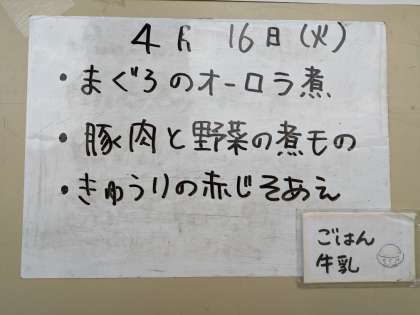 4月 16日(火)
・まぐろのオーロラ煮
・豚肉と野菜の煮もの
・きゅうりの赤じそあえ
ごはん
牛乳